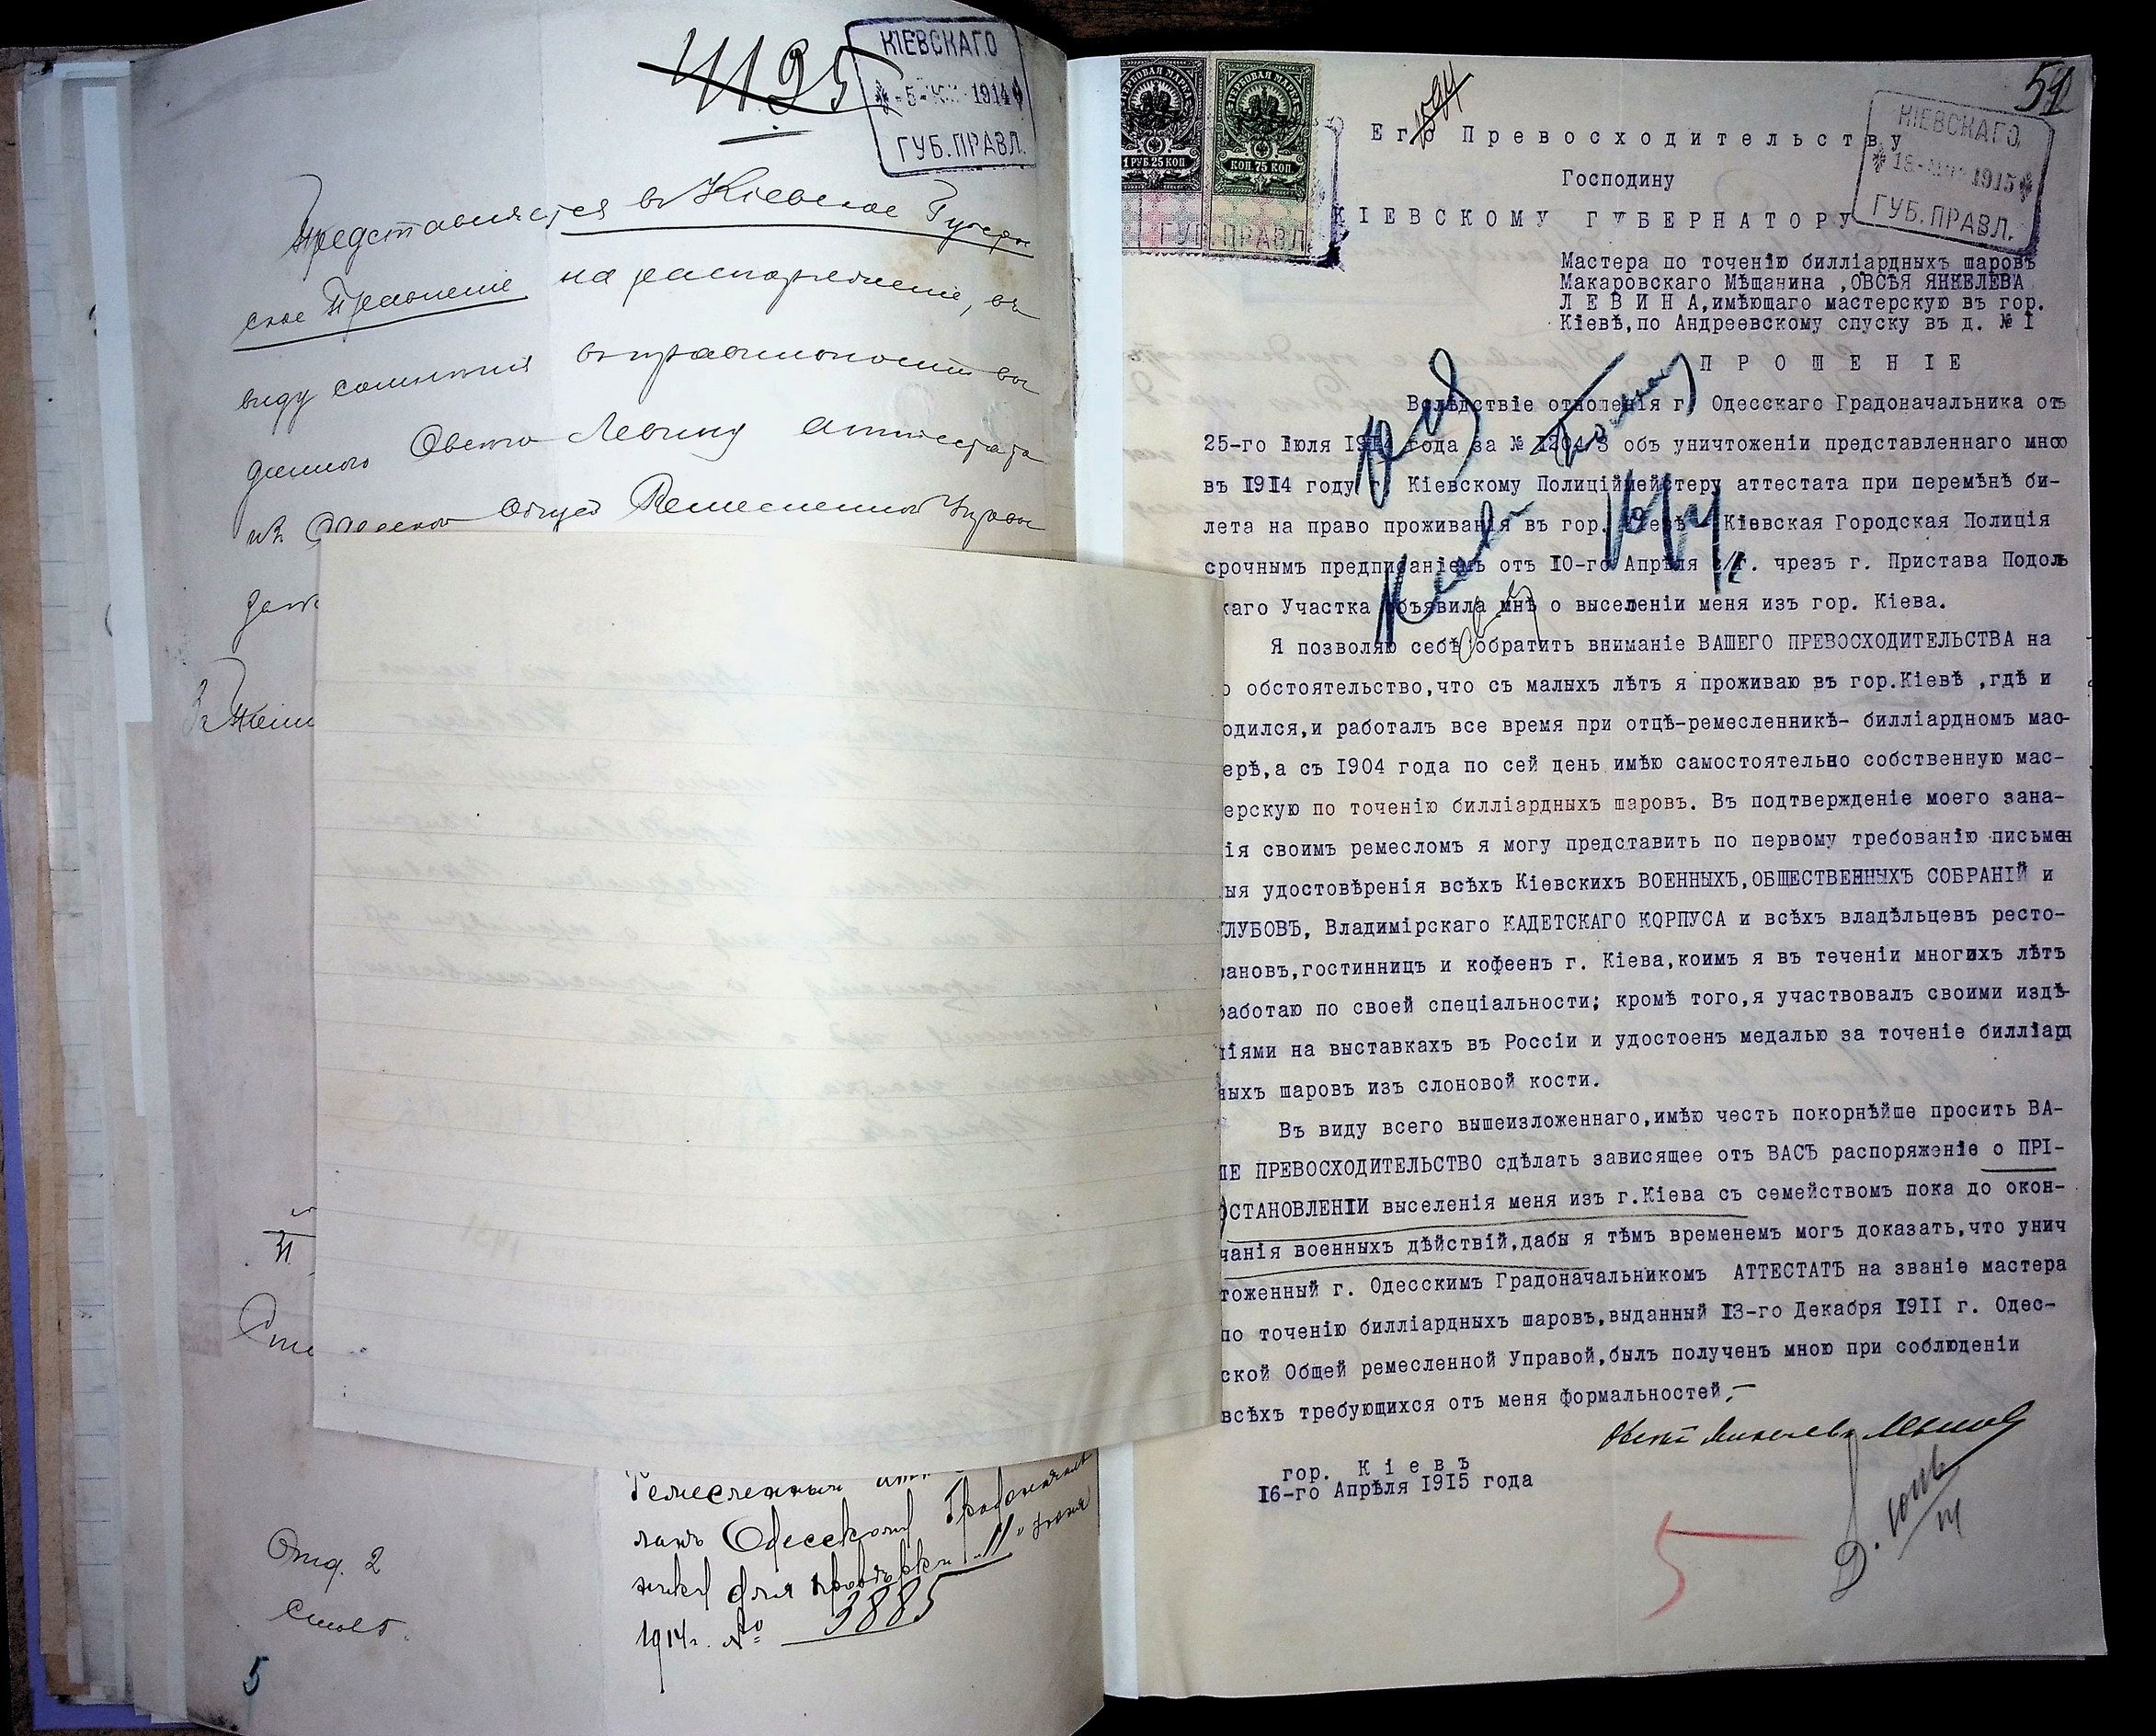 41135
КІЕВСКАГО
-5- 1914
ГУБ. ПРАВЛ.
Представляется въ Кіевское Губерн
ское Правленіе на распоряженіе, въ
виду сомнѣнія въ правильности вы
даннаго Овсею Левину аттестата
изъ Одесской Общей Ремесленной Управы
Ремесленный
ланъ Одесскому Градоначаль
нику для провѣрки 11 Іюня
1914 г. № 3885
Отд. 2
Столъ
5
51
ГЕРБОВАЯ МАРКА
1 РУБ. 25 КОП
ГЕРБОВАЯ МАРКА
КОП. 75 КОП.
ГУБ. ПРАВЛ.
КІЕВСКАГО
1915
ГУБ. ПРАВЛ.
Его Превосходительству
Господину
КІЕВСКОМУ ГУБЕРНАТОРУ
Мастера по точенію билліардныхъ шаровъ
Макаровскаго Мѣщанина ,ОВСѢЯ ЯНКЕЛЕВА
Л Е В И Н А,имѣющаго мастерскую въ гор.
Кіевѣ,по Андреевскому спуску въ д. № I
П Р О Ш Е Н І Е
Вслѣдствіе отношенія г. Одесскаго Градоначальника отъ
25-го Іюля года за № объ уничтоженіи представленнаго мною
въ 1914 году г. Кіевскому Полиціймейстеру аттестата при перемѣнѣ би-
лета на право проживанія въ гор. Кіевѣ Кіевская Городская Полиція
срочнымъ предписаніемъ отъ 10-го Апрѣля с/г. чрезъ г. Пристава Подоль
каго Участка объявила мнѣ о выселеніи меня изъ гор. Кіева.
Я позволяю себѣ обратить вниманіе ВАШЕГО ПРЕВОСХОДИТЕЛЬСТВА на
о обстоятельство,что съ малыхъ лѣтъ я проживаю въ гор.Кіевѣ ,гдѣ и
одился,и работалъ все время при отцѣ-ремесленникѣ- билліардномъ мас-
ерѣ,а съ 1904 года по сей день имѣю самостоятельно собственную мас-
ерскую по точенію билліардныхъ шаровъ. Въ подтвержденіе моего зана-
ія своимъ ремесломъ я могу представить по первому требованію письмен
ыя удостовѣренія всѣхъ Кіевскихъ ВОЕННЫХЪ,ОБЩЕСТВЕННЫХЪ СОБРАНІЙ и
ЛУБОВЪ, Владимірскаго КАДЕТСКАГО КОРПУСА и всѣхъ владѣльцевъ ресто-
ановъ,гостинницъ и кофеенъ г. Кіева,коимъ я въ теченіи многихъ лѣтъ
работаю по своей спеціальности; кромѣ того,я участвовалъ своими издѣ-
ліями на выставкахъ въ Россіи и удостоенъ медалью за точеніе билліард
ныхъ шаровъ изъ слоновой кости.
Въ виду всего вышеизложеннаго,имѣю честь покорнѣйше просить ВА-
ШЕ ПРЕВОСХОДИТЕЛЬСТВО сдѣлать зависящее отъ ВАСЪ распоряженіе о ПРІ-
ОСТАНОВЛЕНІИ выселенія меня изъ г.Кіева съ семействомъ пока до окон-
чанія военныхъ дѣйствій,дабы я тѣмъ временемъ могъ доказать,что унич
тоженный г. Одесскимъ Градоначальникомъ АТТЕСТАТЪ на званіе мастера
по точенію билліардныхъ шаровъ,выданный 13-го Декабря 1911 г. Одес-
ской Общей ремесленной Управой,былъ полученъ мною при соблюденіи
всѣхъ требующихся отъ меня формальностей,—
Левинъ
гор. К і е в ъ
16-го Апрѣля 1915 года
5